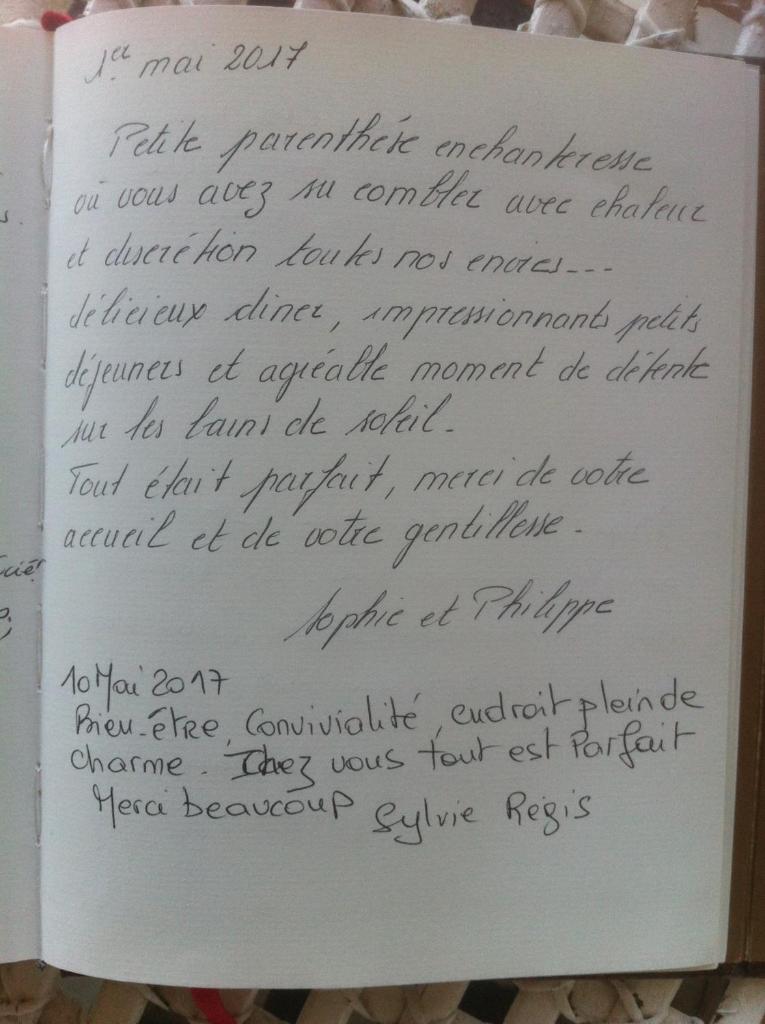 1er mai 2017
Petite parenthèse enchanteresse
où vous avez su combler avec chaleur
et discrétion toutes nos envies...
délicieux diner, impressionnants petits
déjeuners et agréable moment de détente
sur les bains de soleil.
Tout était parfait, merci de votre
accueil et de votre gentillesse.
Sophie et Philippe
10 Mai 2017
Bien-être, Convivialité, endroit plein de
charme. Chez vous tout est Parfait
Merci beaucoup Sylvie Régis